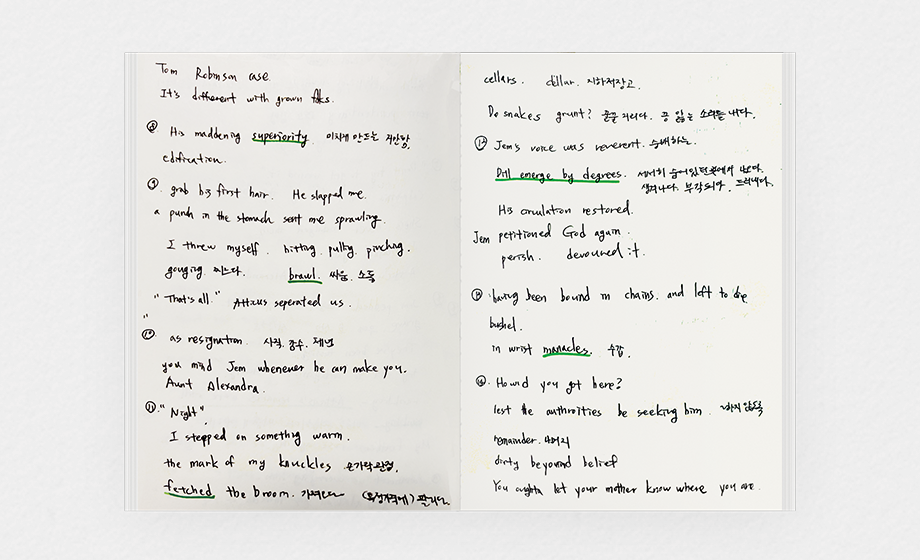 Tom Robinson case.
It's different with grown folks.
⑧ His maddening superiority. 미치게 만드는 자만함,
edification.
⑨ grab his first hair. He slapped me.
a punch in the stomach sent me sprawling.
I threw myself. hitting. pulling. pinching.
gouging. 찌르다. brawl. 싸움. 소동
"That's all." Atticus seperated us.
"
⑩ as resignation. 사직. 감수. 체념
you mind Jem whenever he can make you.
Aunt Alexandra.
⑪ "Night".
I stepped on something warm.
the mark of my knuckles 손가락관절.
fetched the broom. 가져오다 (특정가격에) 팔리다.
cellars. 지하저장고.
Do snakes grunt? 꿀꿀거리다. 끙 앓는 소리를 내다.
⑫ Jem's voice was reverent. 숭배하는.
Dill emerge by degrees. 서서히 숨어있던곳에서 나오다.
생겨나다. 부각되다. 드러내다.
His circulation restored.
Jem petitioned God again.
perish. devoured it.
⑬ having been bound in chains. and left to die
bushel.
in wrist manacles. 수갑.
⑭ How'd you get here?
lest the authroities be seeking him. ~하지 않도록
remainder. 나머지
dirty beyound belief
You oughta let your mother know where you are.